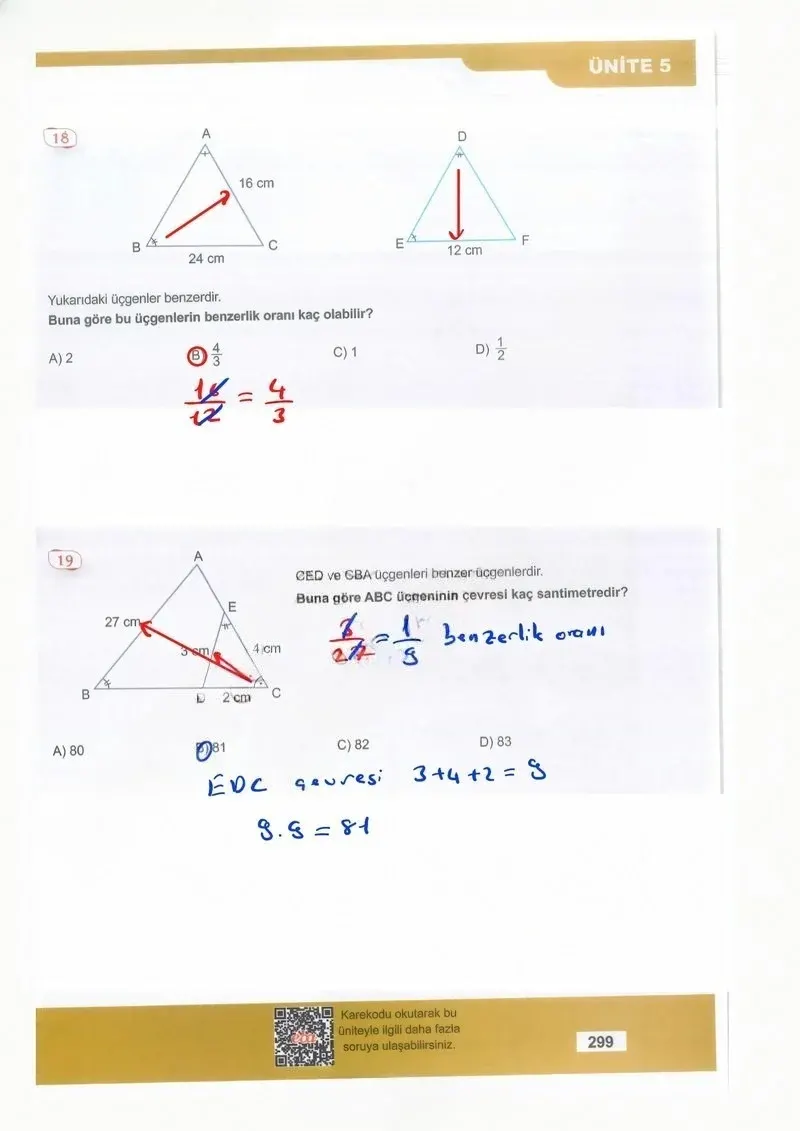 ÜNİTE 5
18
A
16 cm
B
C
24 cm
D
E
F
12 cm
Yukarıdaki üçgenler benzerdir.
Buna göre bu üçgenlerin benzerlik oranı kaç olabilir?
A) 2 B) 4/3 C) 1 D) 1/2
16/12 = 4/3
19
A
E
27 cm
3 cm
4 cm
B
D
2 cm
C
CED ve CBA üçgenleri benzer üçgenlerdir.
Buna göre ABC üçgeninin çevresi kaç santimetredir?
3/27 = 1/9 benzerlik oranı
A) 80 B) 81 C) 82 D) 83
EDC çevresi 3+4+2 = 9
9.9 = 81
Karekodu okutarak bu
üniteyle ilgili daha fazla
soruya ulaşabilirsiniz.
299